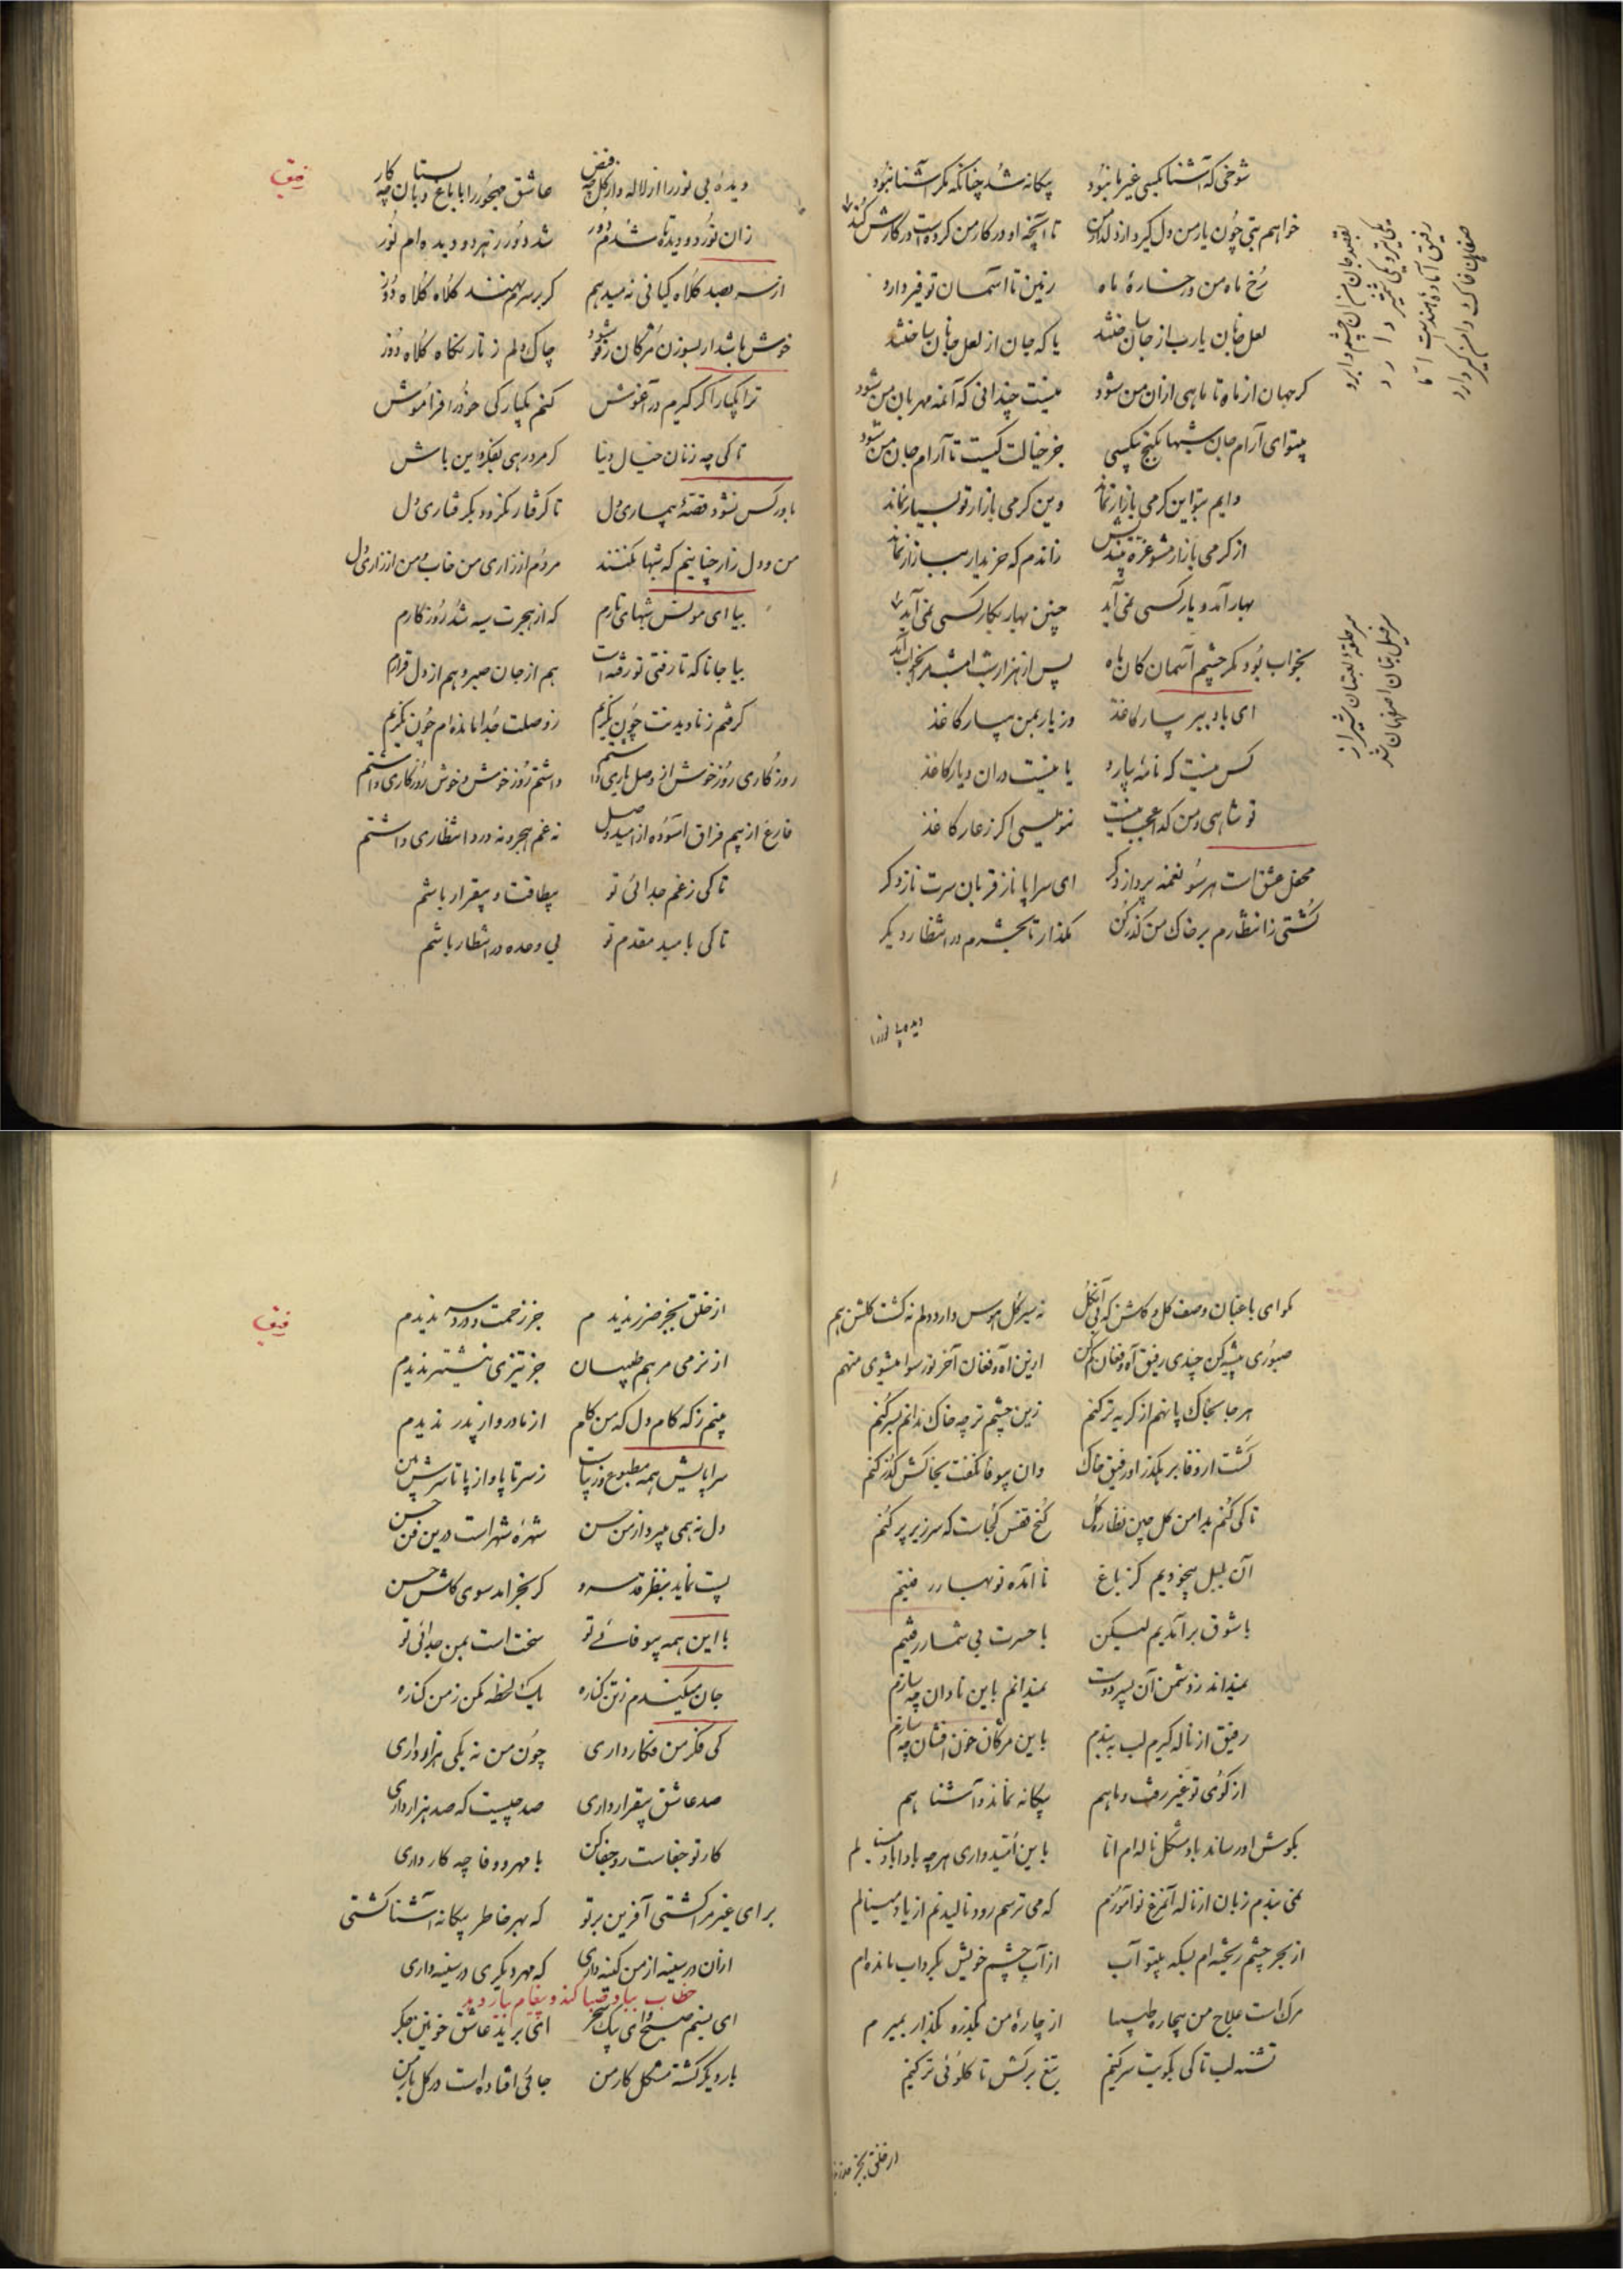 شوخی که آشنا بکسی غیر ما نبود بیگانه شد چنانکه مگر آشنا نبود
خواهم بتی چون یار من دل گیرد از دلدار من تا آنچه او در کار من کردست در کارش کند
رخ ماه من و رخساره ماه زمین تا آسمان توفیر دارد
لعل جانان یا رب از جان ساختند یا که جان از لعل جانان ساختند
گر جهان از ماه تا ماهی ازان من شود نیست چندانی که آنمه مهربان من شود
بیتو ای آرام جان شبها بکنج بیکسی جز خیالت کیست تا آرام جان من شود
دایم بتو این گرمی بازار نماند وین گرمی بازار تو بسیار نماند
از گرمی بازار مشو غره بیندیش زاندم که خریدار ببازار نماند
بهار آمد و یار کسی نمی آید چنین بهار بکار کسی نمی آید
بخواب بود مگر چشم آسمان کان ماه پس از هزار شب امشب مرا بخواب آمد
ای باد ببر بیار کاغذ وز یار بمن بیار کاغذ
کس نیست که نامه پاره یا نیست دران دیار کاغذ
تو شاهی و من گدا عجب نیست ننویسی اگر ز عار کاغذ
محفل عشق است هر سو نغمه پرداز دگر ای سراپا ناز قربان سرت ناز دگر
کشتی ز انتظارم بر خاک من گذر کن مگذار تا بحشرم در انتظار دیگر
بقصد جان من زان چشم و ابرو
بکی تیر و یکی شمشیر دارد
رفیق آماده هندست اما
صفاهان خاک دامن گیر دارد
سر حلقه لعبتان شیراز
سر خیل بتان اصفهان شد
رفیق
دیده بی نور را از لاله و از گل چه فیض عاشق مهجور را با باغ و بستان چه کار
زان نور دو دیده تا شدم دور شد دور ز هر دو دیده ام نور
از سر بصد کلاه کیانی نمیدهم گر بر سرم نهند کلاه کلاه دوز
خوش باشد ار بسوزن مژگان رفو شود چاک دلم ز تار نگاه کلاه دوز
ترا یکبار اگر گیرم در آغوش کنم یکبارگی خود را فراموش
تا کی چه زنان خیال دنیا گر مرد رهی بفکر دین باش
باور کس نشود قصه بیماری دل تا گرفتار نگردد بگرفتاری دل
من و دل زار چنانیم که شبها نکنند مردم از زاری من خواب و من از زاری دل
بیا ای مونس شبهای تارم که از هجرت سیه شد روزگارم
بیا جانا که تا رفتی تو رفته است هم از جان صبر و هم از دل قرارم
گرفتم ز نادیدنت چون نگریم ز وصلت جدا مانده ام چون نگریم
روزگاری روز خوش از وصل یاری داشتم داشتم روز خوش و خوش روزگاری داشتم
فارغ از بیم فراق آسوده از امید وصل نه غم هجر و نه درد انتظاری داشتم
تا کی ز غم جدائی تو بیطاقت و بیقرار باشم
تا کی بامید مقدم تو بی وعده در انتظار باشم
دیده بی نور را
مگو ای باغبان وصف گل و گلشن که بی آنگل نه سیر گل هوس دارد دلم نه گشت گلشن هم
صبوری پیشه کن چندی رفیق آه و فغان کم کن ازین آه و فغان آخر تو رسوا میشوی منهم
هر جا بخاک پا نهم از گریه تر کنم زین چشم تر چه خاک ندانم بسر کنم
کشت از وفا بر بگذر او رفیق خاک وان بیوفا نگفت بخاکش گذر کنم
تا کی کنم بدامن گلچین نظاره گل کنج قفس کجاست که سر زیر پر کنم
آن بلبل بیخودیم کز باغ نا آمده نوبهار رفتیم
با شوق بر آمدیم لیکن با حسرت بی شمار رفتیم
نمیداند ز دشمن آن پسر دوست نمیدانم باین نادان چه سازم
رفیق از ناله گیرم لب ببندم باین مژگان خون افشان چه سازم
از کوی تو غیر رفت و ما هم بیگانه نماند و آشنا هم
بگوش او رساند باد مشکل ناله ام اما باین امیدواری هر چه بادا باد مینالم
نمی بندم زبان از ناله آنمرغ نوآموزم که می ترسم رود نالیدنم از یاد مینالم
از بحر چشم ریخته ام بسکه بیتو آب از آب چشم خویش بگرداب مانده ام
مرگ است علاج من بیچاره طبیبا از چاره من بگذر و بگذار بمیرم
تشنه لب تا کی بکویت سر کنیم تیغ برکش تا گلوئی تر کنیم
از خلق بجز ضرر ندیدم
رفیق
از خلق بجز ضرر ندیدم جز زحمت و دردسر ندیدم
از نرمی مرهم طبیبان جز تیزی نیشتر ندیدم
بینم ز که کام دل که من کام از مادر و از پدر ندیدم
سراپایش همه مطبوع و زیباست ز سر تا پا و از پا تا سرش بین
دل نه همی میبرد از من حسن شهره شهر است درین فن حسن
پست نماید بنظر قد سرو گر بخرامد سوی گلشن حسن
با این همه بیوفائے تو سخت است بمن جدائی تو
جان میکندم ز تن کناره یک لحظه مکن ز من کناره
کی فکر من فگار داری چون من نه یکی هزار داری
صد عاشق بیقرار داری صد چیست که صد هزار داری
کار تو جفاست رو جفا کن با مهر و وفا چه کار داری
برای غیر مرا کشتی آفرین بر تو که بهر خاطر بیگانه آشنا کشتی
ازان در سینه از من کینه داری که مهر دیگری در سینه داری
خطاب بباد صبا کند و پیغام بیار دهد
ای نسیم صبح و ای پیک سحر ای برید عاشق خونین جگر
بار دیگر گشته مشکل کار من جائی افتاده است در گل بار من